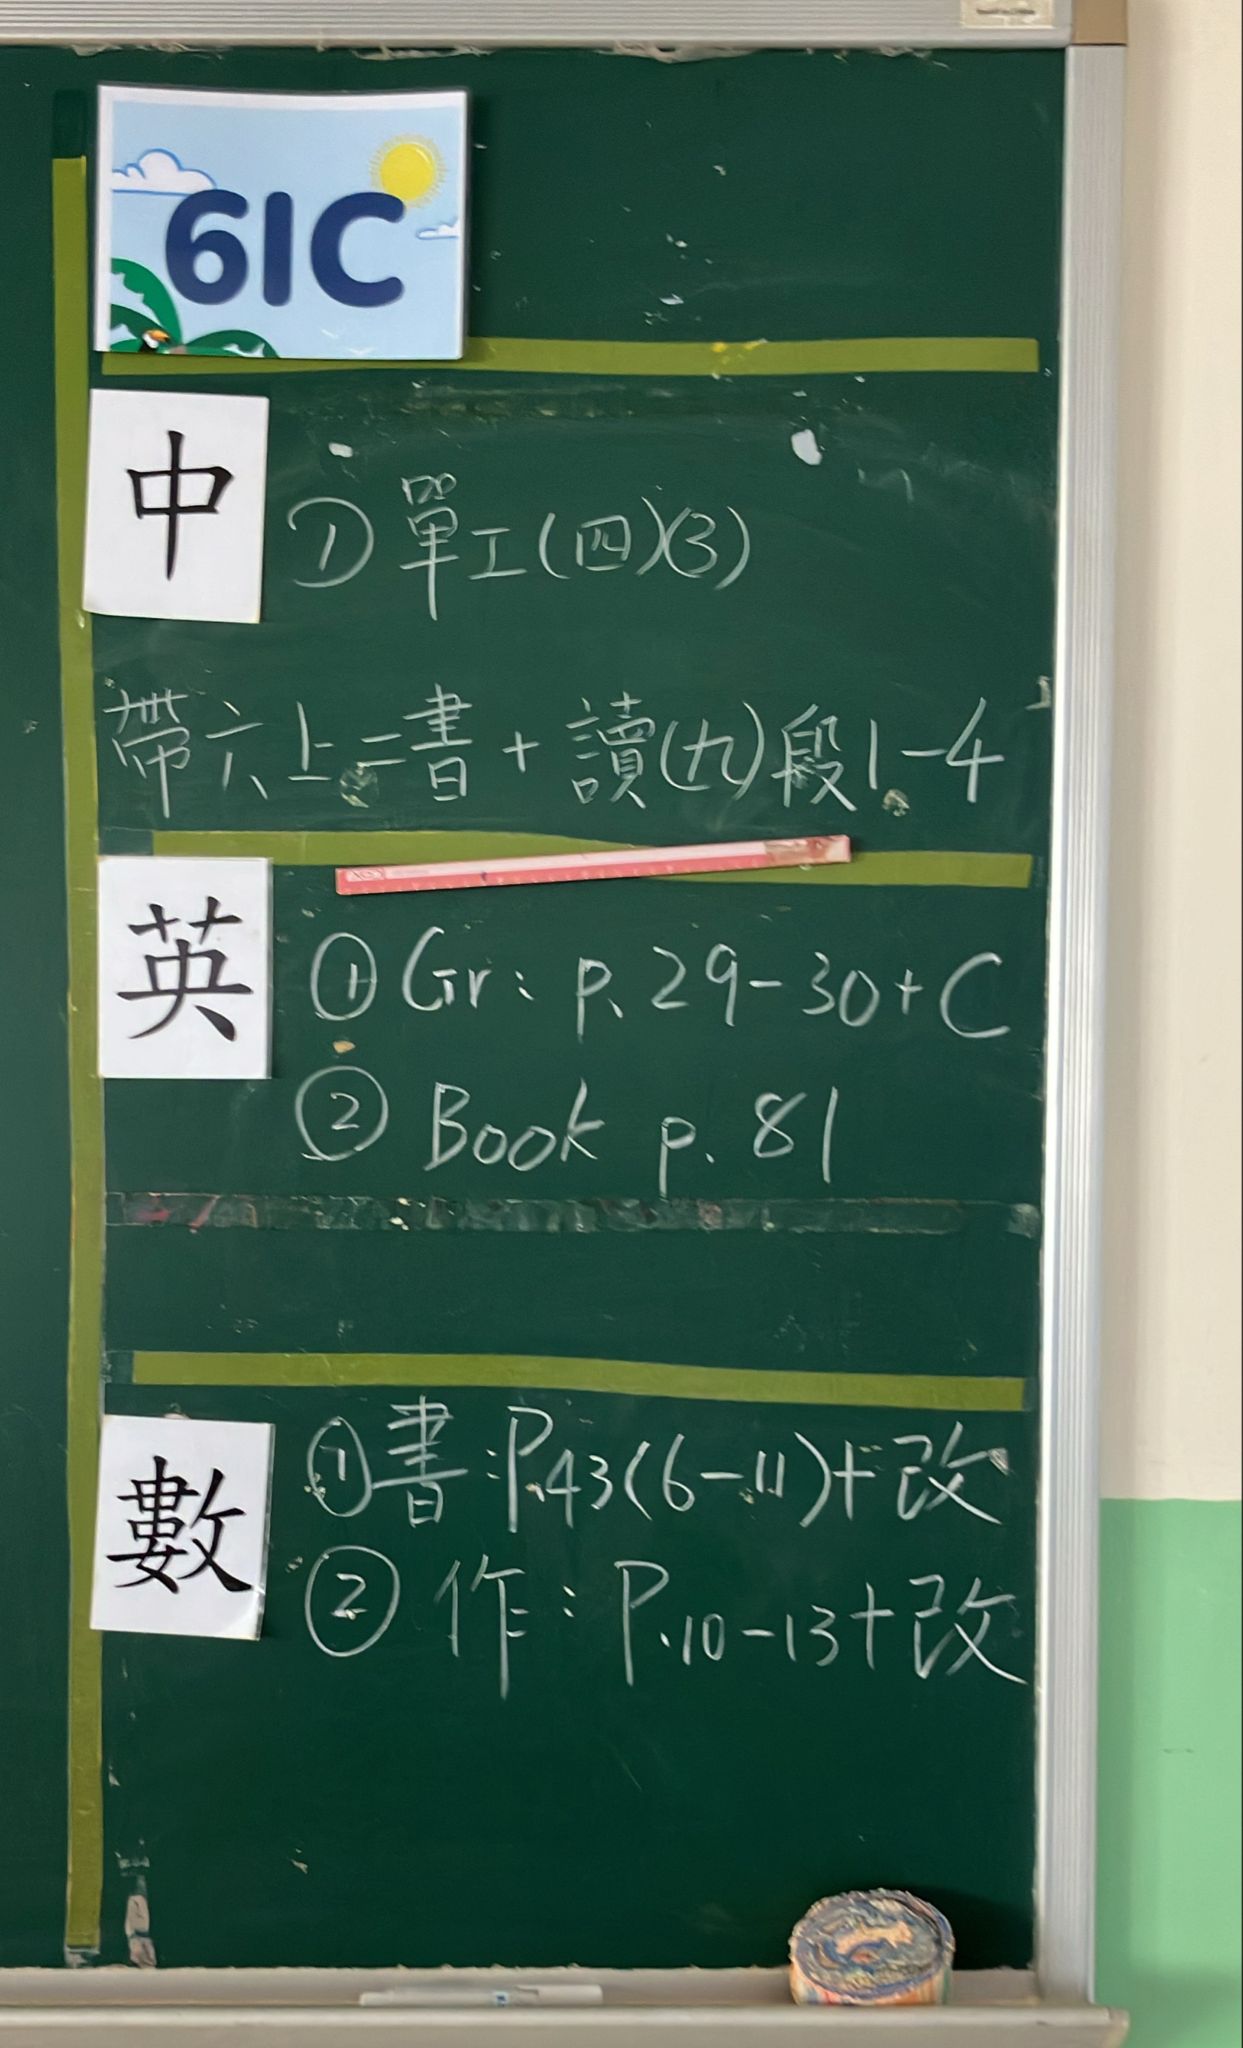 61C
中
① 單工(四)(3)
帶六上二書 + 讀(九)段1-4
英
① Gr: p. 29-30 + C
② Book p. 81
數
① 書:P.43(6-11)+改
② 作:P.10-13+改